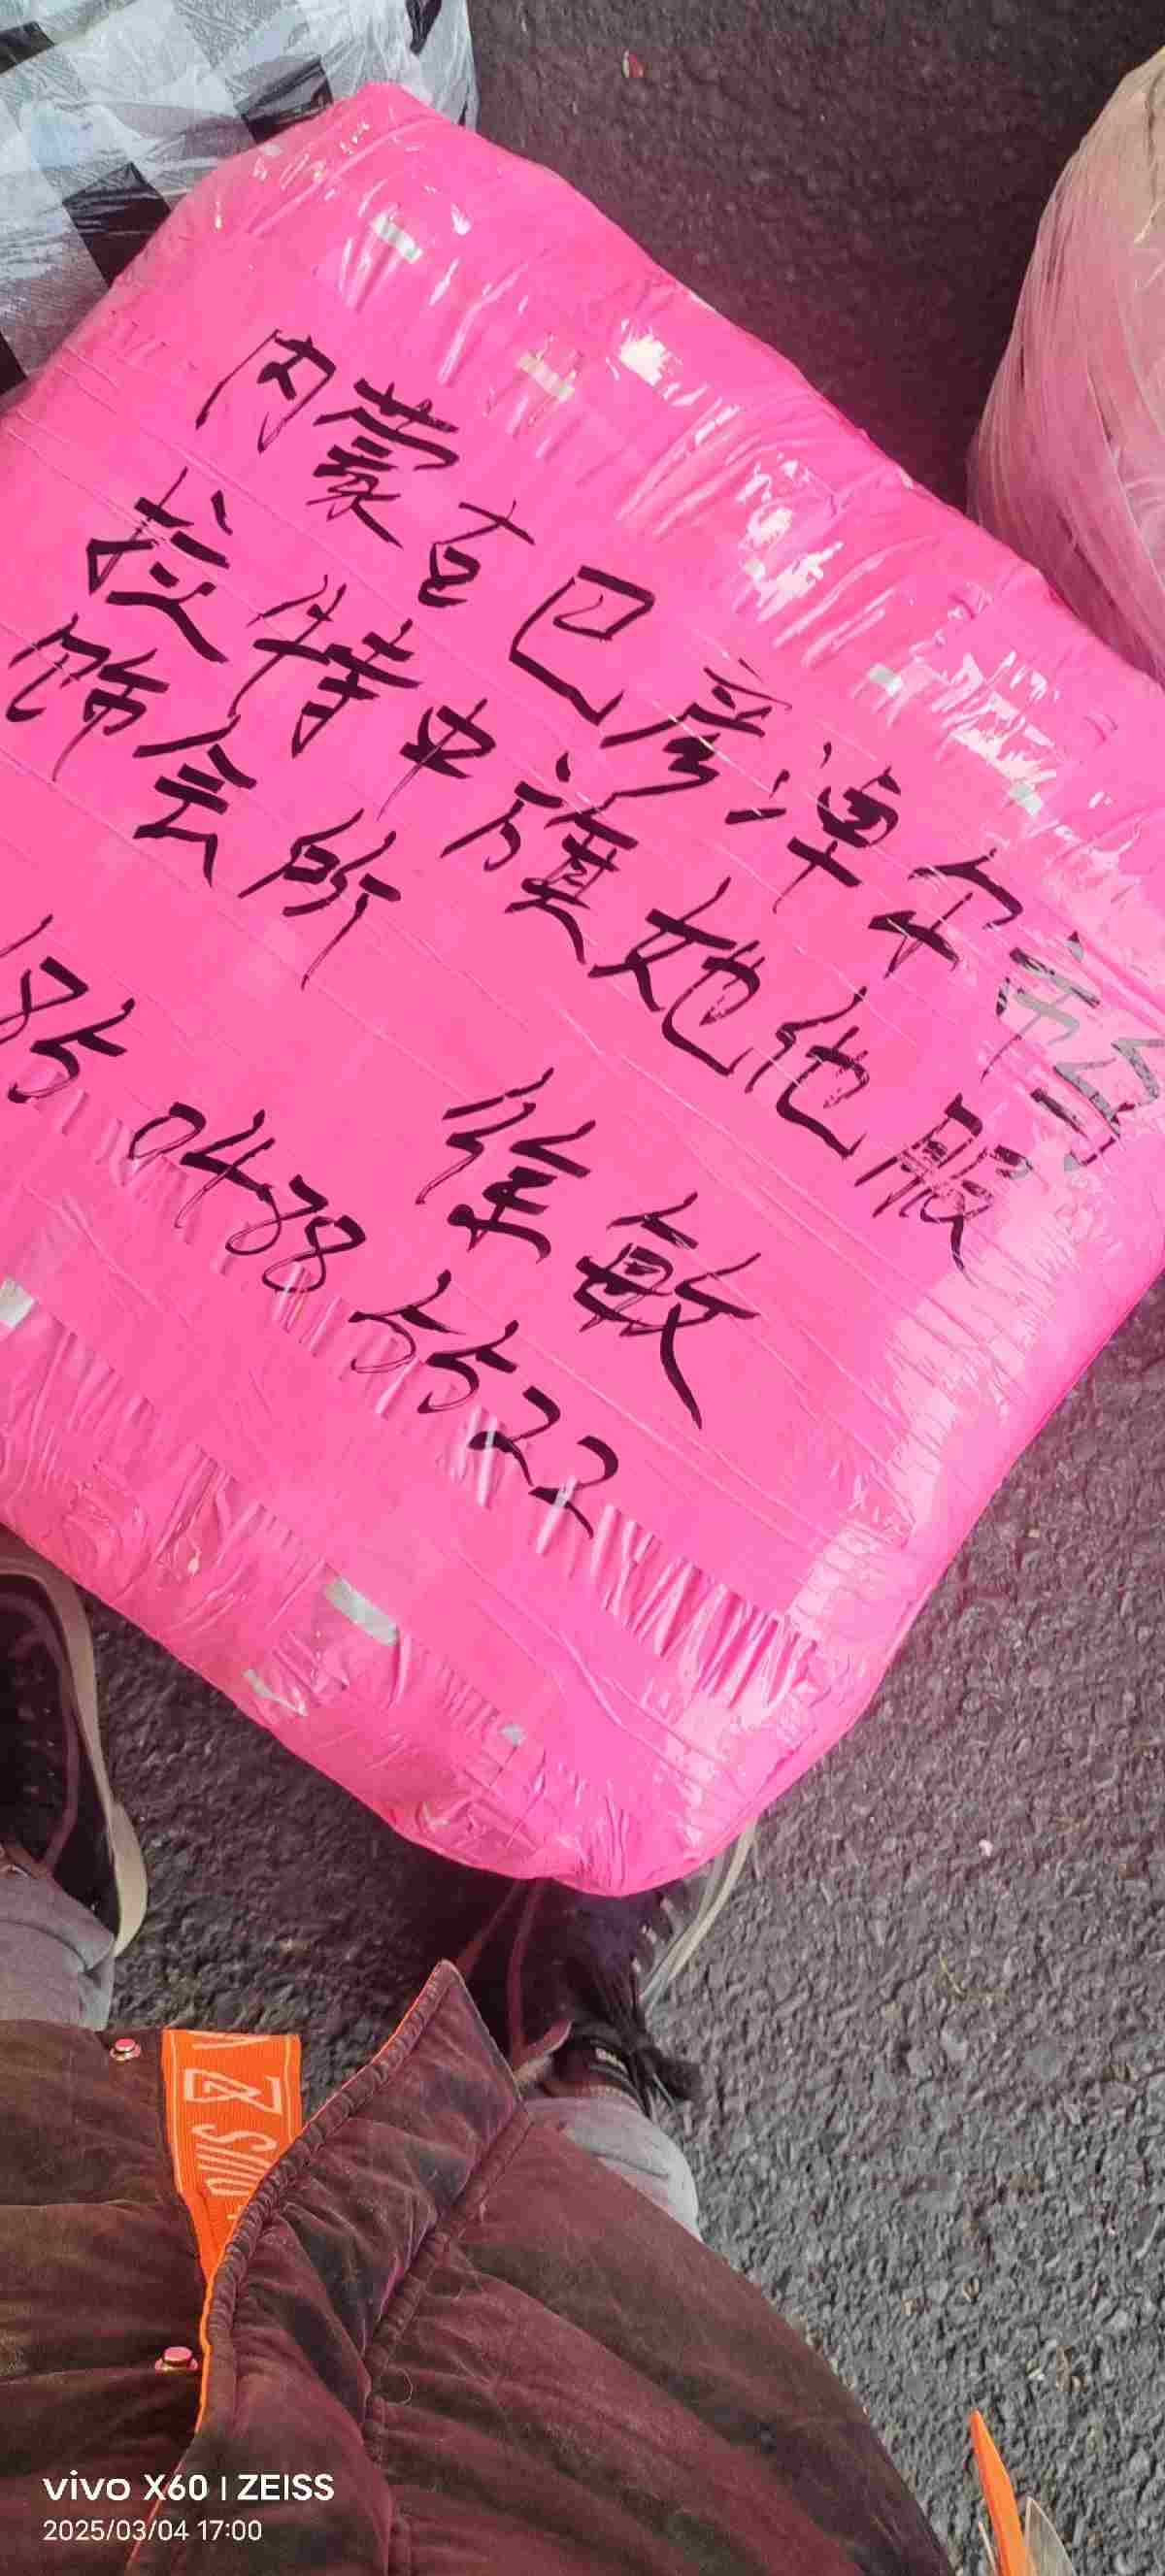 内蒙古巴彦淖尔乌
拉特中旗她他服
饰会所
徐敏
185 0478 5522
vivo X60 | ZEISS
2025/03/04 17:00